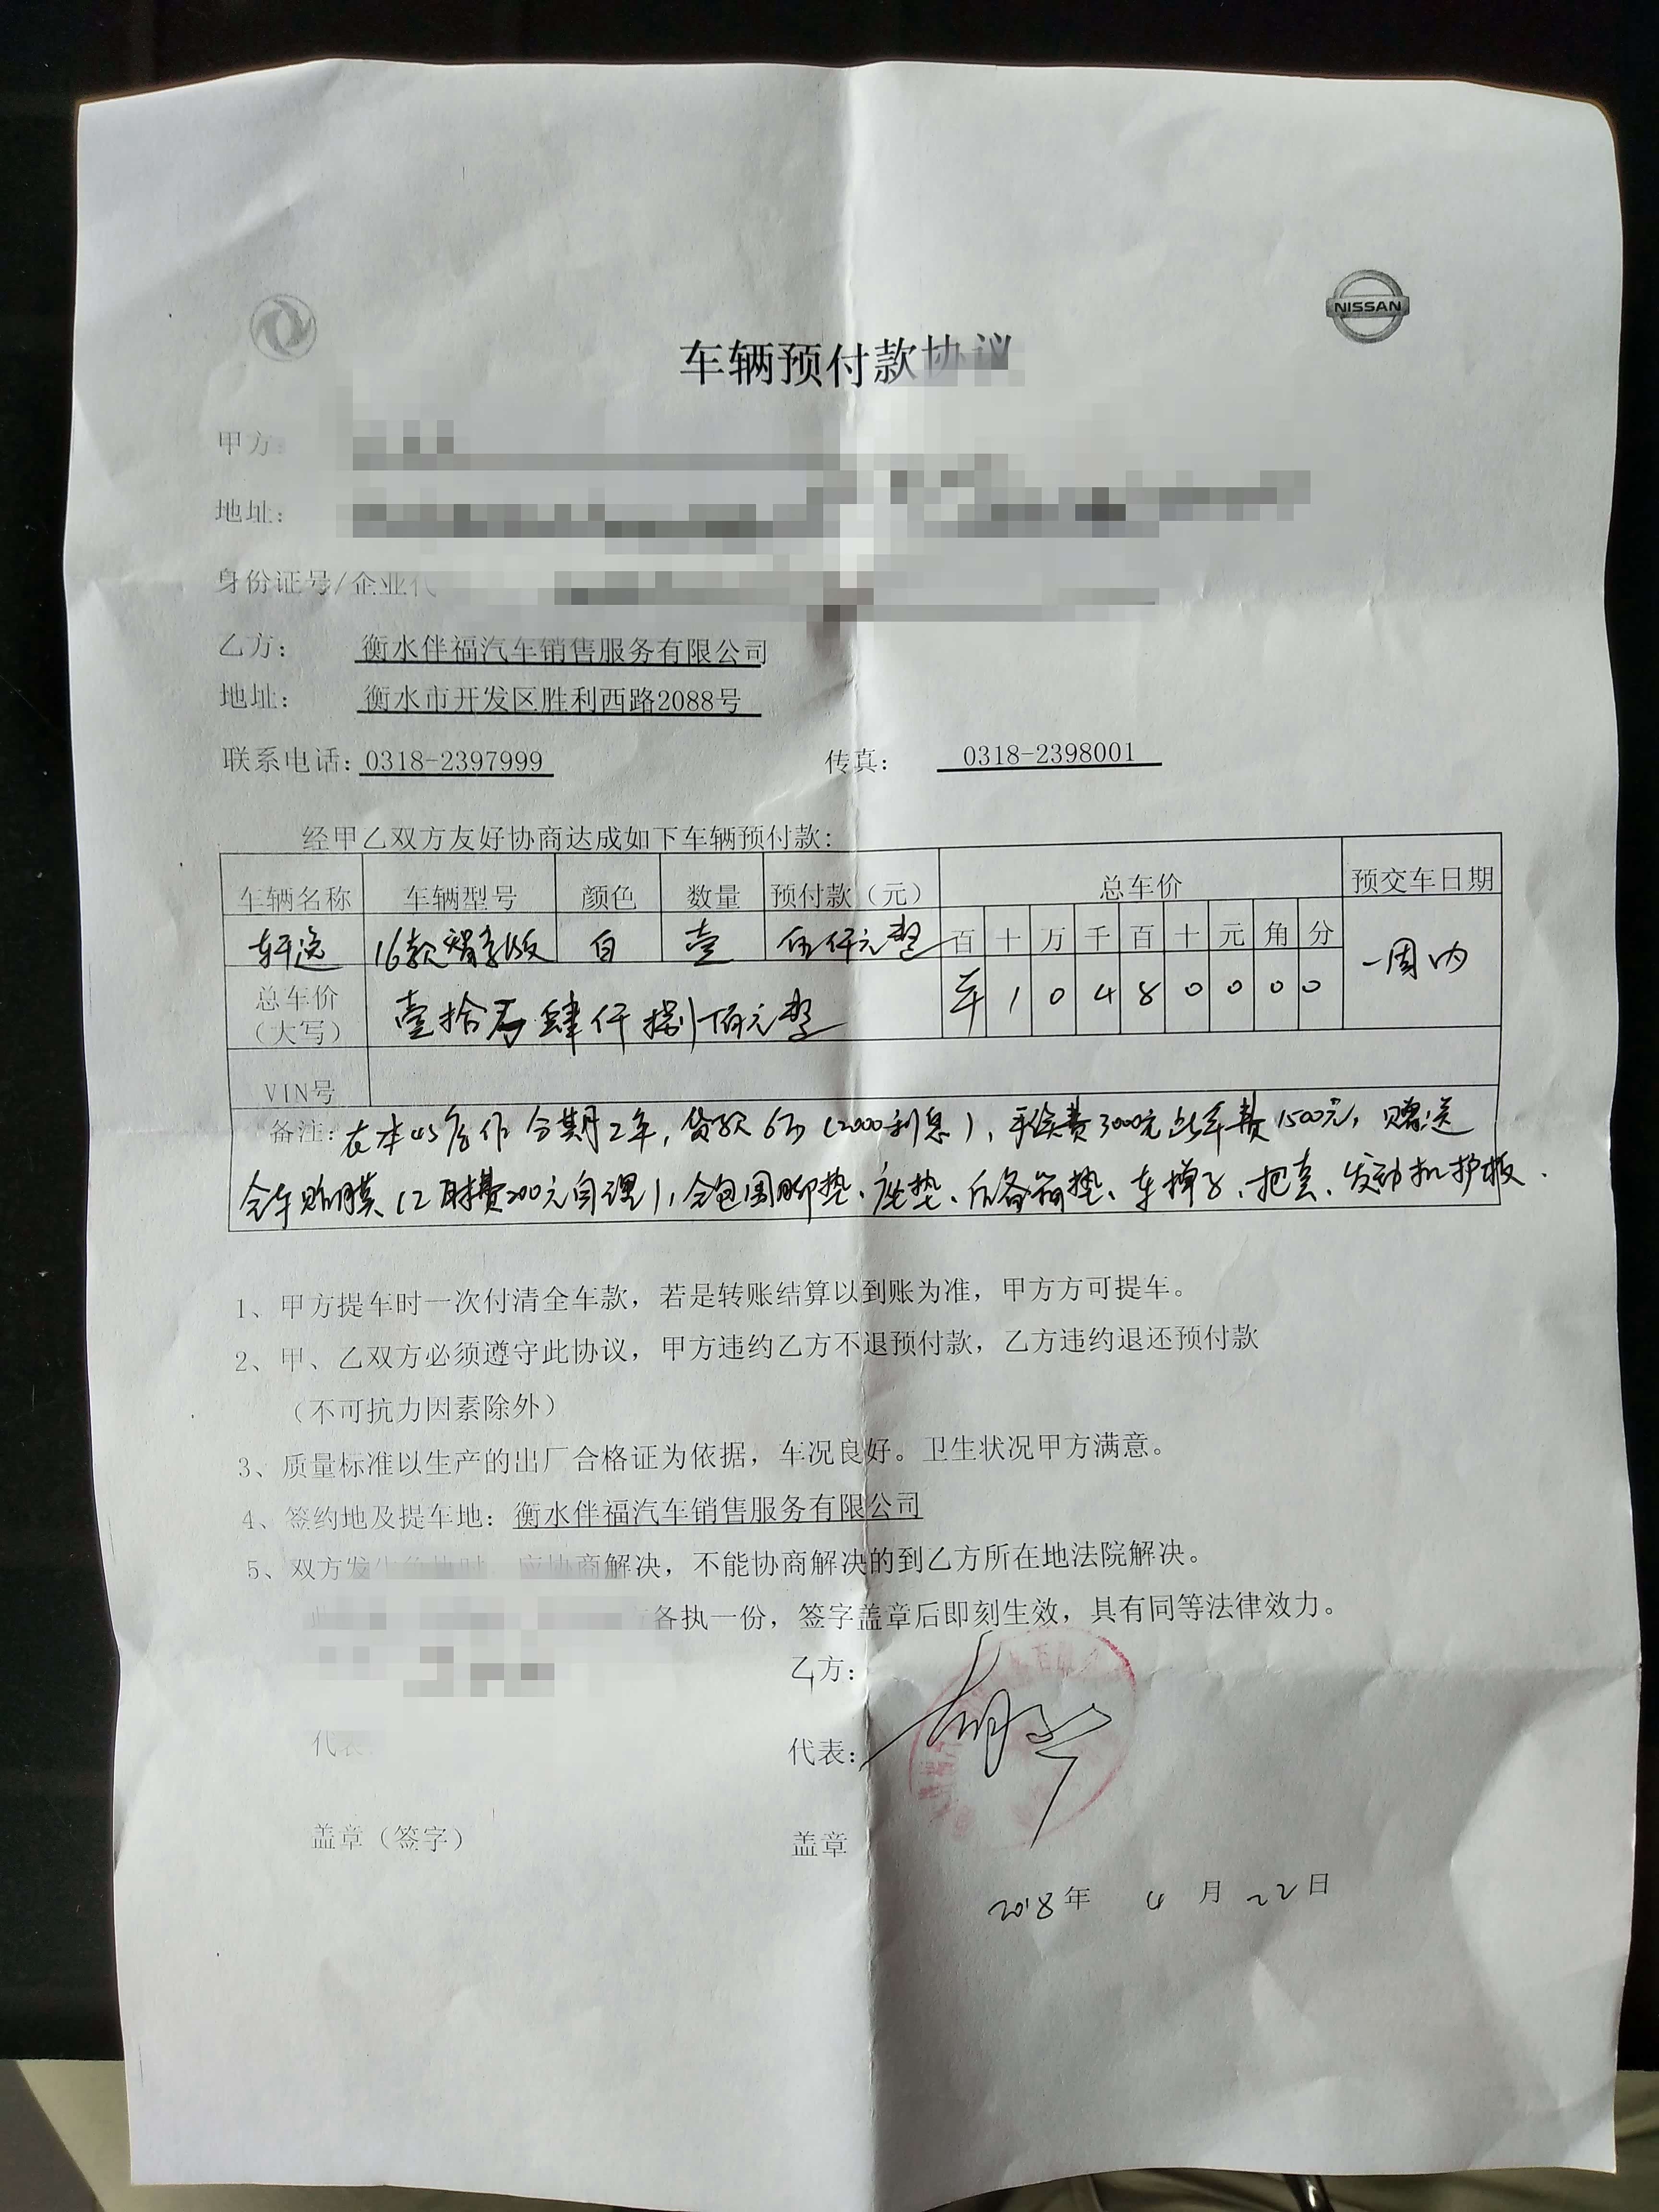 NISSAN
车辆预付款协议
甲方:
地址:
身份证号/企业代
乙方: 衡水伴福汽车销售服务有限公司
地址: 衡水市开发区胜利西路2088号
联系电话:0318-2397999 传真: 0318-2398001
经甲乙双方友好协商达成如下车辆预付款:
车辆名称 车辆型号 颜色 数量 预付款（元） 总车价 预交车日期
百 十 万 千 百 十 元 角 分
轩逸 16款 白 壹 伍仟元整 一周内
总车价（大写） 壹拾万肆仟捌佰元整 车 1 0 4 8 0 0 0 0
VIN号
备注: 在本4S店作分期2年, 贷款6万(2000利息), 手续费3000元 1500元, 赠送
全车贴膜(工时费200元自理), 全包围脚垫、座垫、后备箱垫、车掸子、把套、发动机护板.
1、甲方提车时一次付清全车款，若是转账结算以到账为准，甲方方可提车。
2、甲、乙双方必须遵守此协议，甲方违约乙方不退预付款，乙方违约退还预付款
（不可抗力因素除外）
3、质量标准以生产的出厂合格证为依据，车况良好。卫生状况甲方满意。
4、签约地及提车地: 衡水伴福汽车销售服务有限公司
5、双方发 应协商解决，不能协商解决的到乙方所在地法院解决。
各执一份，签字盖章后即刻生效，具有同等法律效力。
乙方:
代表:
代表:
盖章（签字） 盖章
2018年 4 月 22日